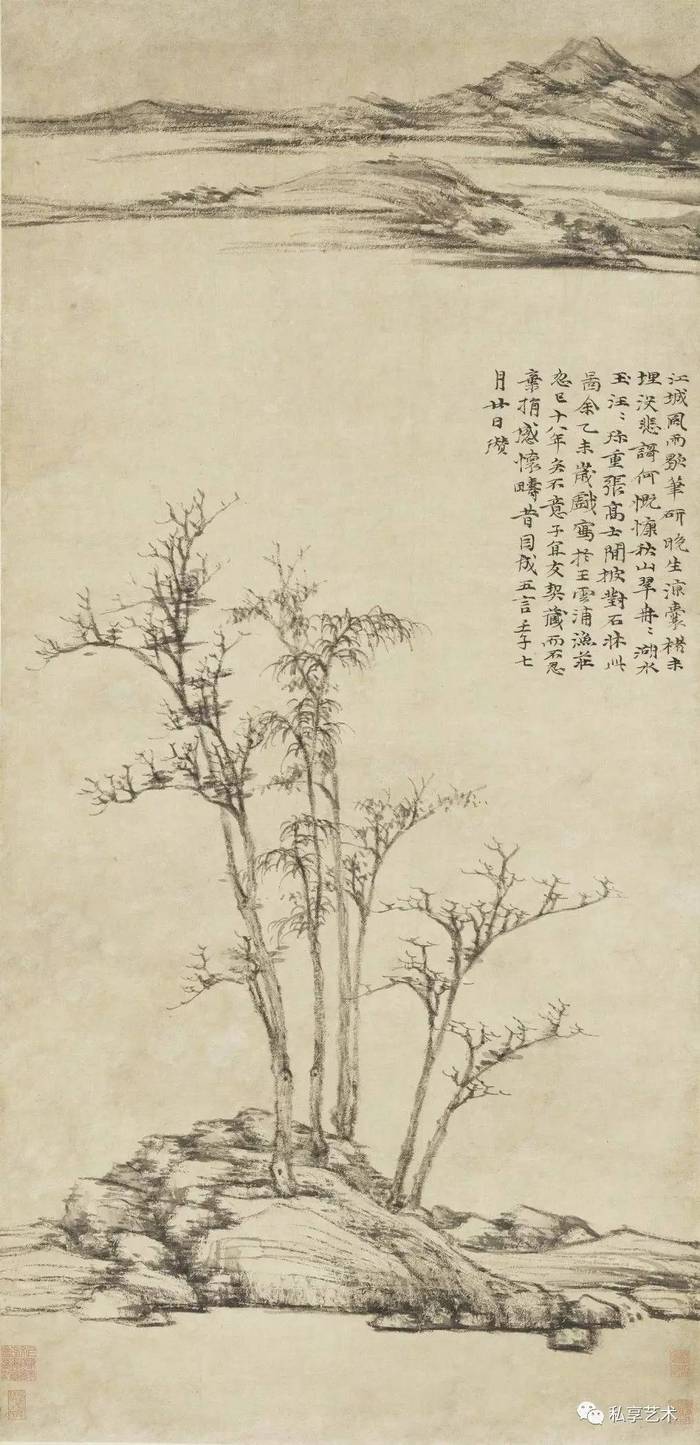 江城風雨歇筆研晚生涼囊楮未
埋没悲謌何慨慷秋山翠冉〻湖水
玉汪〻珍重張高士閒披對石牀此
啚余乙未歲戲寫於王雲浦漁莊
忽已十八年矣不意子宜友契藏而不忍
棄捐感懷疇昔因成五言壬子七
月廿日瓚
私享艺术